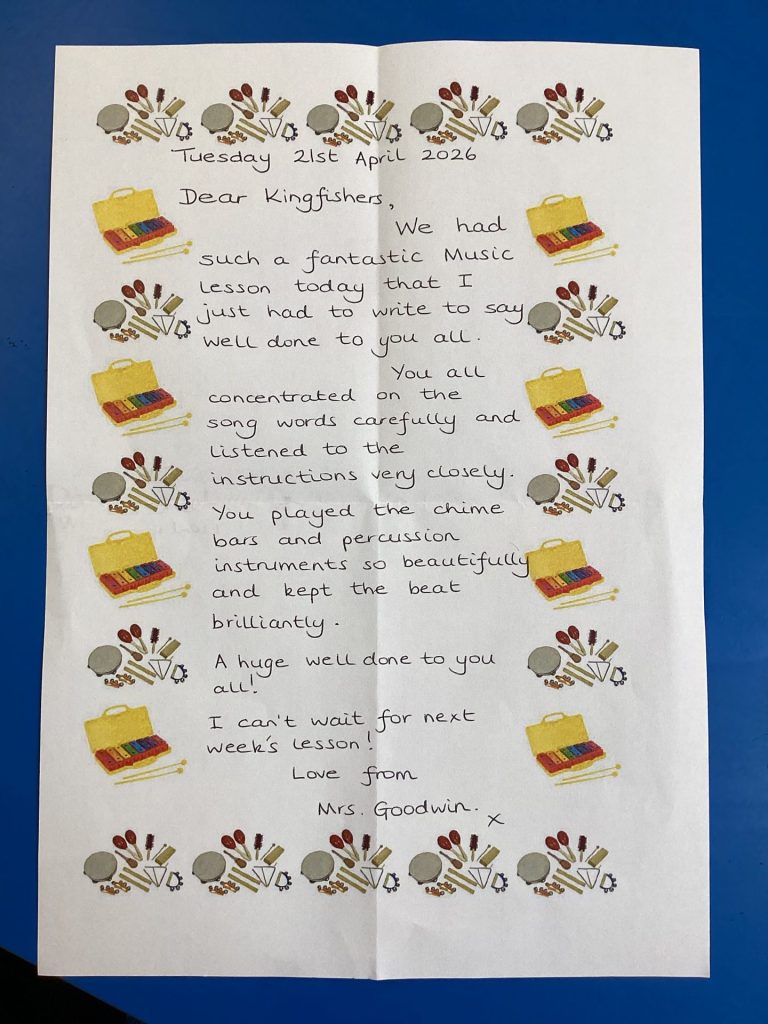 Tuesday 21st April 2026
Dear Kingfishers,
We had
such a fantastic Music
lesson today that I
just had to write to say
well done to you all.
You all
concentrated on the
song words carefully and
listened to the
instructions very closely.
You played the chime
bars and percussion
instruments so beautifully
and kept the beat
brilliantly.
A huge well done to you
all!
I can't wait for next
week's lesson!
Love from
Mrs. Goodwin. x